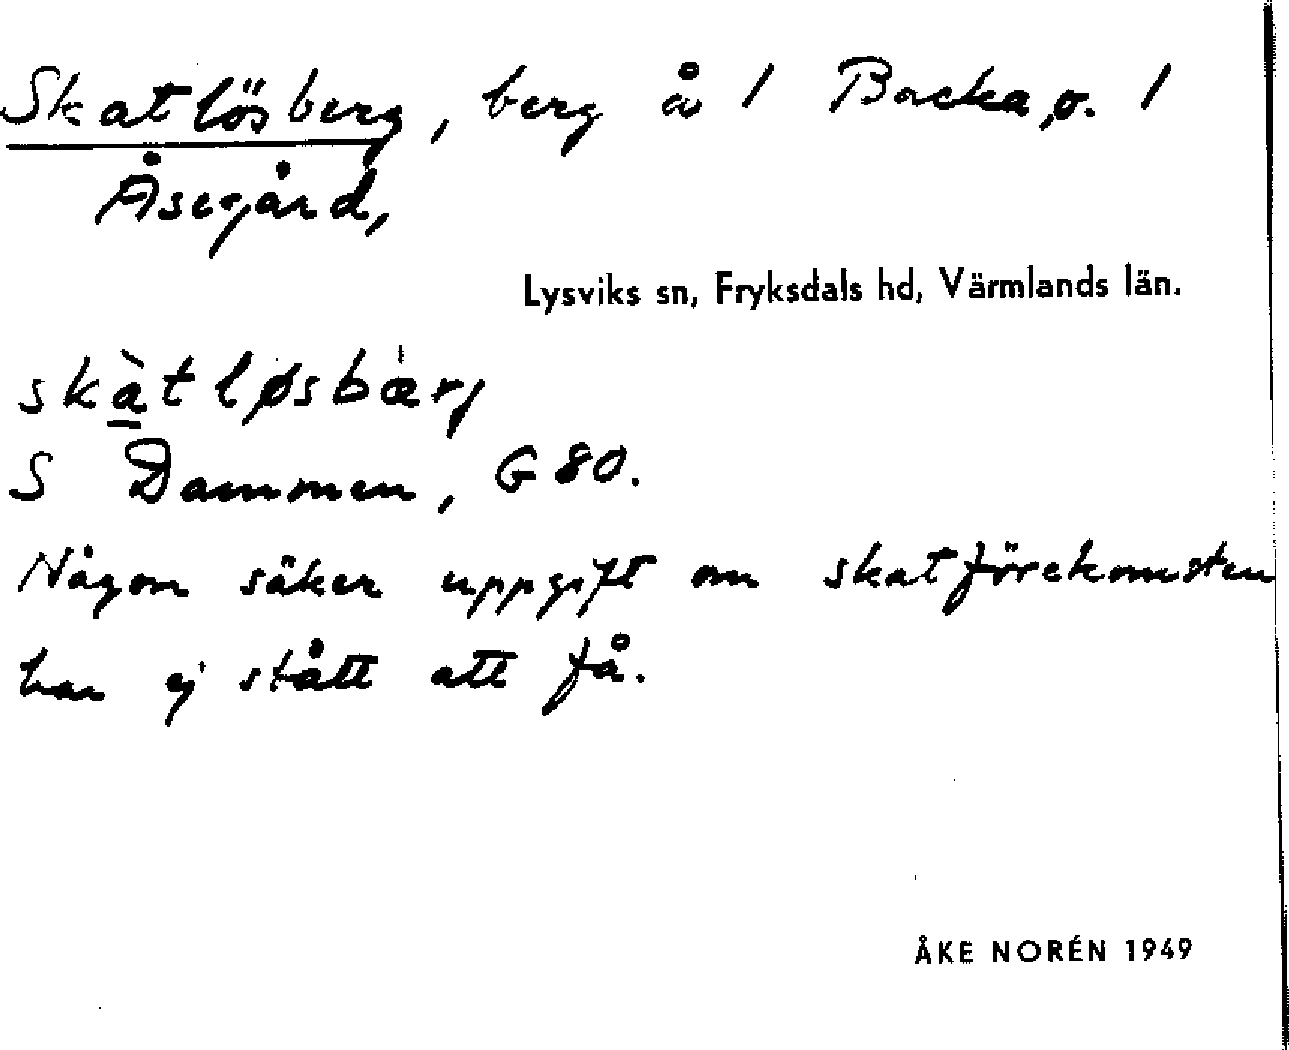 Skatlösberg, berg å 1 Backa, o. 1
Åsegård,
Lysviks sn, Fryksdals hd, Värmlands län.
skàtløsbærj
S Dammen, G 80.
Någon säker uppgift om skatförekomsten
har ej stått att få.
ÅKE NORÉN 1949